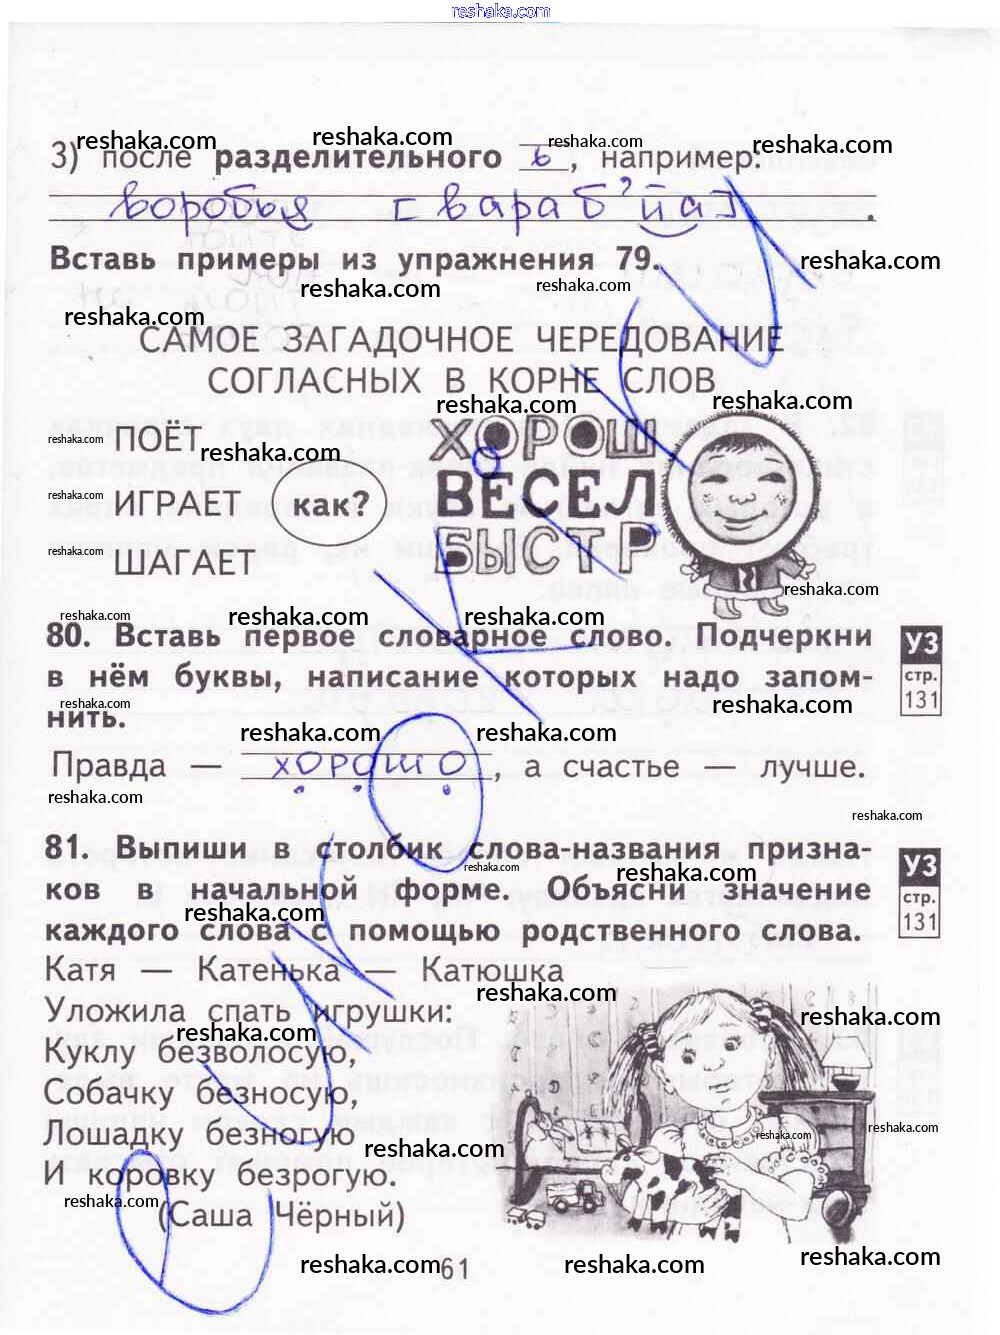 reshaka.com
reshaka.com reshaka.com reshaka.com reshaka.com
3) после разделительного ь, например:
воробья [вараб'йа].
Вставь примеры из упражнения 79.
reshaka.com
reshaka.com reshaka.com
reshaka.com
САМОЕ ЗАГАДОЧНОЕ ЧЕРЕДОВАНИЕ
СОГЛАСНЫХ В КОРНЕ СЛОВ
reshaka.com reshaka.com
ПОЁТ
ИГРАЕТ
ШАГАЕТ
как?
ХОРОШ
ВЕСЕЛ
БЫСТР
reshaka.com reshaka.com
reshaka.com
reshaka.com
reshaka.com
reshaka.com reshaka.com reshaka.com
80. Вставь первое словарное слово. Подчеркни
в нём буквы, написание которых надо запом-
нить.
УЗ
стр.
131
reshaka.com
reshaka.com reshaka.com
Правда — хорошо, а счастье — лучше.
reshaka.com
reshaka.com
81. Выпиши в столбик слова-названия призна-
ков в начальной форме. Объясни значение
каждого слова с помощью родственного слова.
УЗ
стр.
131
reshaka.com reshaka.com
reshaka.com
Катя — Катенька — Катюшка
Уложила спать игрушки:
Куклу безволосую,
Собачку безносую,
Лошадку безногую
И коровку безрогую.
(Саша Чёрный)
reshaka.com
reshaka.com reshaka.com
reshaka.com reshaka.com
reshaka.com
61
reshaka.com reshaka.com reshaka.com